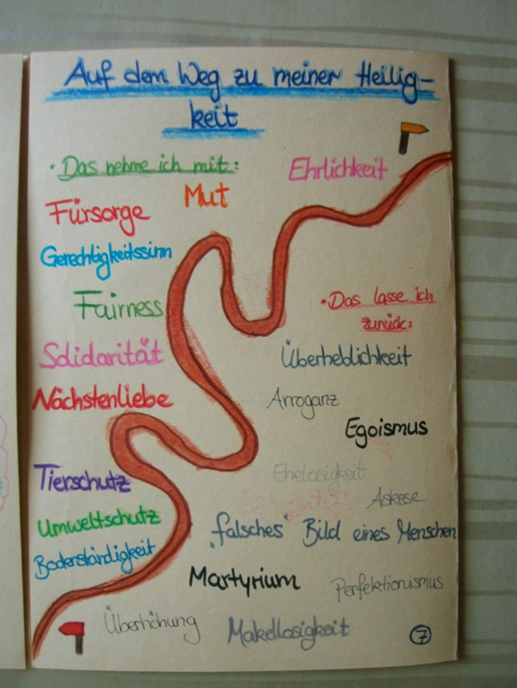 Auf dem Weg zu meiner Heilig-
keit
• Das nehme ich mit:
Ehrlichkeit
Mut
Fürsorge
Gerechtigkeitssinn
Fairness
Solidarität
Nächstenliebe
Tierschutz
Umweltschutz
Bodenständigkeit
• Das lasse ich
zurück:
Überheblichkeit
Arroganz
Egoismus
Ehelosigkeit
Askese
„falsches“ Bild eines Menschen
Martyrium
Perfektionismus
Überhöhung
Makellosigkeit
7